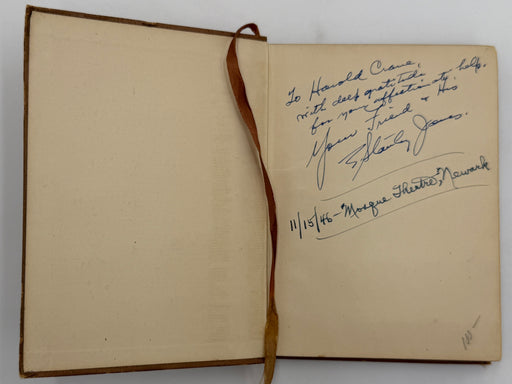 To Harold Crane,
with deep gratitude
for your affectionate help.
Your Friend & His
E Stanley Jones.
11/15/46 - "Mosque Theatre," Newark